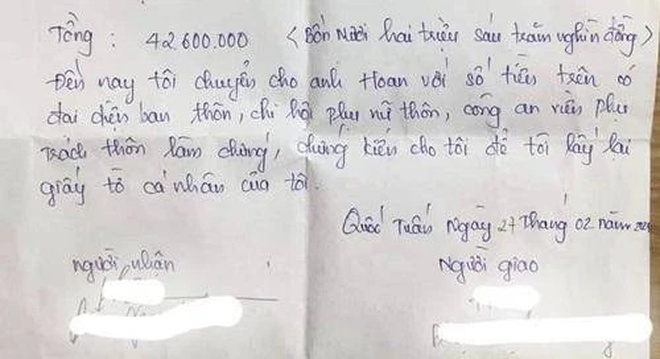 Tổng : 42.600.000 <Bốn Mươi hai triệu sáu trăm nghìn đồng>
Đến nay tôi chuyển cho anh Hoan với số tiền trên có
đại diện ban thôn, chi hội phụ nữ thôn, công an viên phụ
trách thôn làm chứng, chứng kiến cho tôi để tôi lấy lại
giấy tờ cá nhân của tôi.
Quốc Tuấn Ngày 27 Tháng 02 năm
người nhận
Người giao